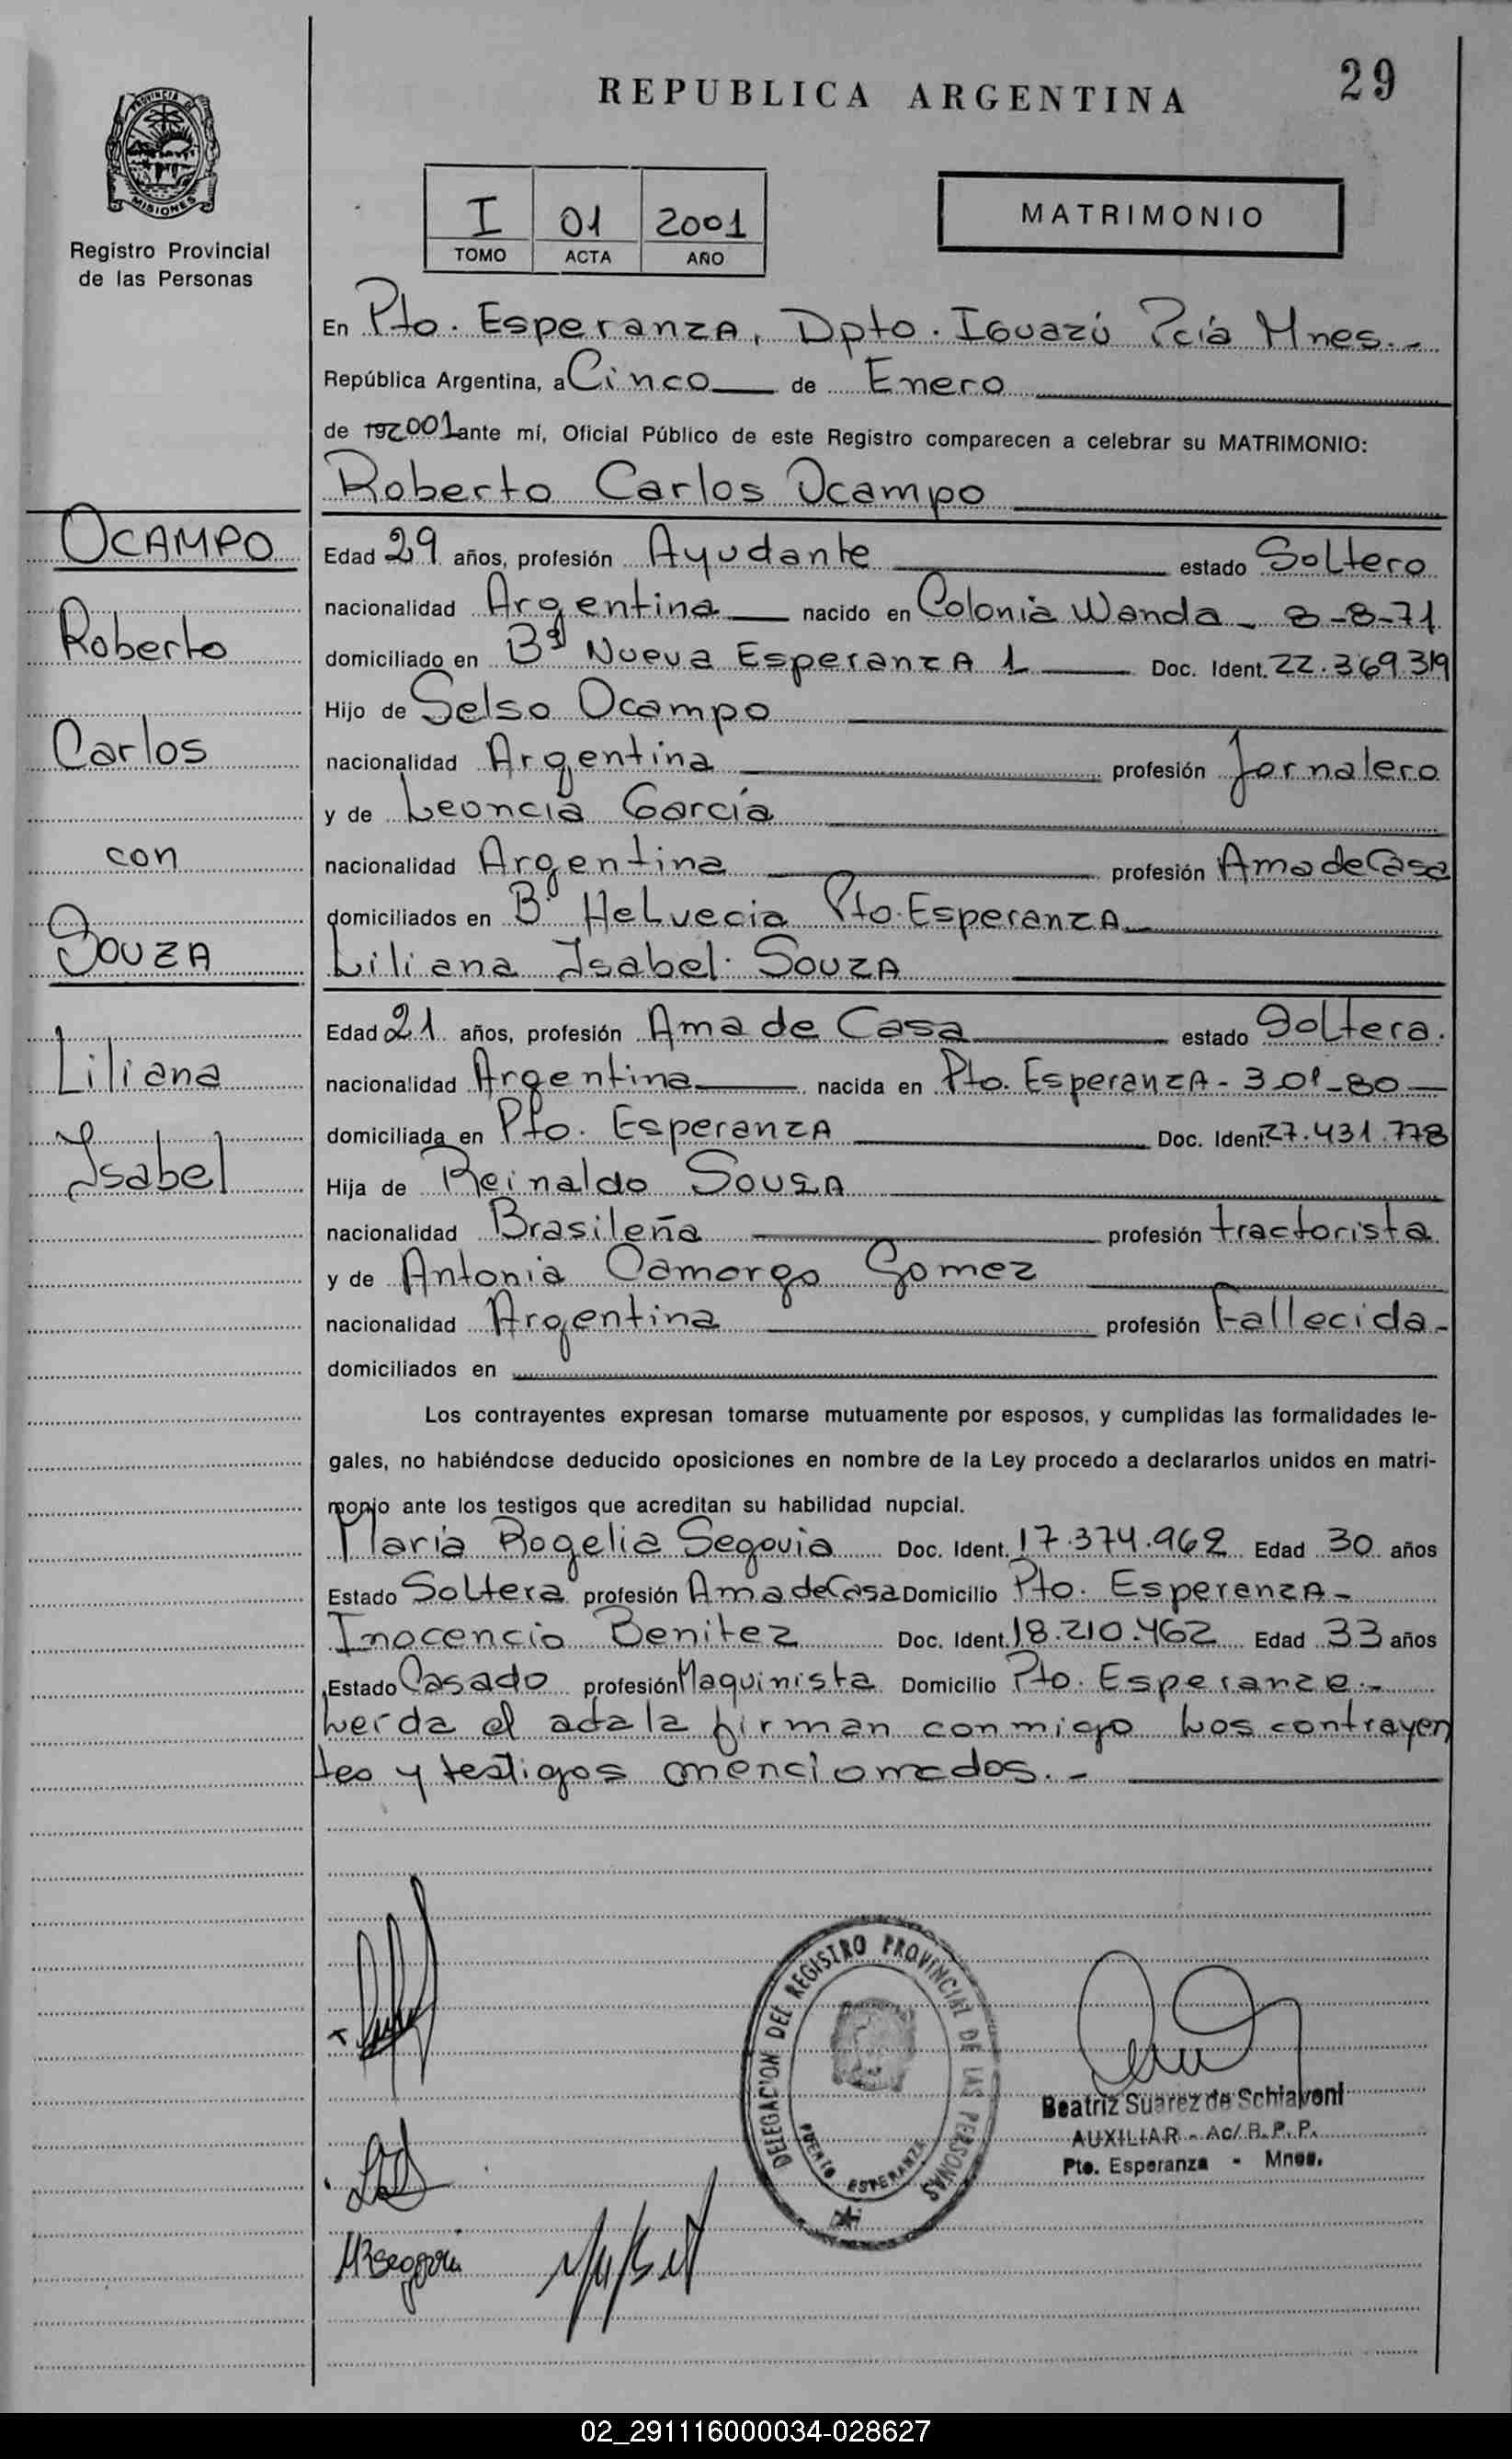 REPUBLICA ARGENTINA
29
PROVINCIA DE
MISIONES
Registro Provincial
de las Personas
I 01 2001
TOMO ACTA AÑO
MATRIMONIO
En Pto. Esperanza, Dpto. Iguazú Pcia Mnes.-
República Argentina, a Cinco de Enero
de 192001 ante mí, Oficial Público de este Registro comparecen a celebrar su MATRIMONIO:
Roberto Carlos Ocampo
OCAMPO
Roberto
Carlos
con
SOUZA
Liliana
Isabel
Edad 29 años, profesión Ayudante estado Soltero
nacionalidad Argentina nacido en Colonia Wanda - 8-8-71
domiciliado en Bº Nueva Esperanza 1 Doc. Ident. 22.369.319
Hijo de Selso Ocampo
nacionalidad Argentina profesión Jornalero
y de Leoncia García
nacionalidad Argentina profesión Ama de Casa
domiciliados en Bº Helvecia Pto. Esperanza
Liliana Isabel Souza
Edad 21 años, profesión Ama de Casa estado Soltera.
nacionalidad Argentina nacida en Pto. Esperanza - 3-01-80
domiciliada en Pto. Esperanza Doc. Ident. 27.431.778
Hija de Reinaldo Souza
nacionalidad Brasileña profesión tractorista
y de Antonia Camargo Gomez
nacionalidad Argentina profesión Fallecida-
domiciliados en
Los contrayentes expresan tomarse mutuamente por esposos, y cumplidas las formalidades le-
gales, no habiéndose deducido oposiciones en nombre de la Ley procedo a declararlos unidos en matri-
monio ante los testigos que acreditan su habilidad nupcial.
María Rogelia Segovia Doc. Ident. 17.374.962 Edad 30 años
Estado Soltera profesión Ama de Casa Domicilio Pto. Esperanza-
Inocencio Benitez Doc. Ident. 18.210.462 Edad 33 años
Estado Casado profesión Maquinista Domicilio Pto. Esperanza.-
Leida el acta la firman conmigo los contrayen
tes y testigos mencionados.-
DELEGACION DEL REGISTRO PROVINCIAL DE LAS PERSONAS
PUERTO ESPERANZA
Beatriz Suarez de Schiavoni
AUXILIAR - Ac/ R. P. P.
Pto. Esperanza - Mnes.
MRSegovia
02_291116000034-028627